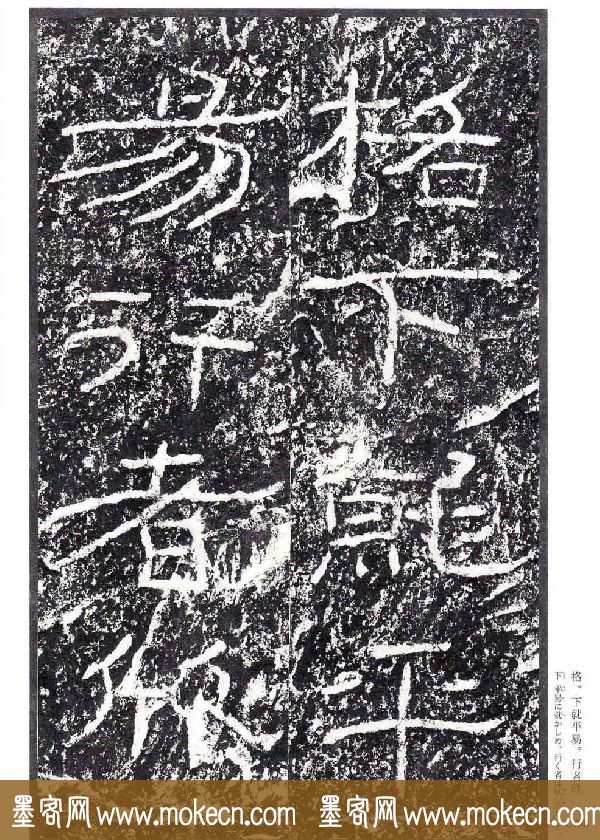 格下就平
易行者欣
格。下就平易。行者欣
下平易に就かしめ、行く者は
墨客网 www.mokecn.com 墨客网 www.mokecn.com